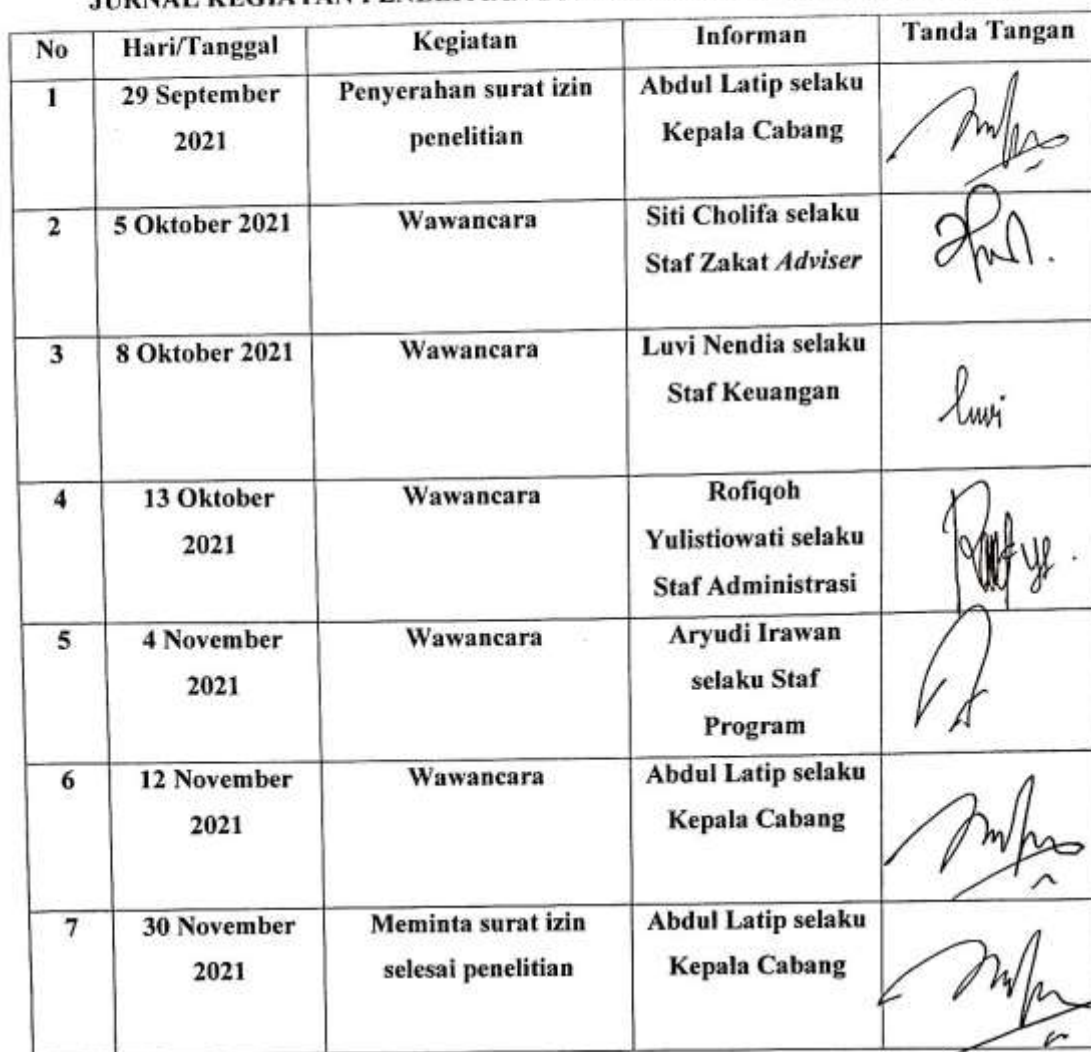 JURNAL KEGIATAN PENELITIAN
No Hari/Tanggal Kegiatan Informan Tanda Tangan
1 29 September 2021 Penyerahan surat izin penelitian Abdul Latip selaku Kepala Cabang
2 5 Oktober 2021 Wawancara Siti Cholifa selaku Staf Zakat Adviser
3 8 Oktober 2021 Wawancara Luvi Nendia selaku Staf Keuangan luvi
4 13 Oktober 2021 Wawancara Rofiqoh Yulistiowati selaku Staf Administrasi
5 4 November 2021 Wawancara Aryudi Irawan selaku Staf Program
6 12 November 2021 Wawancara Abdul Latip selaku Kepala Cabang
7 30 November 2021 Meminta surat izin selesai penelitian Abdul Latip selaku Kepala Cabang